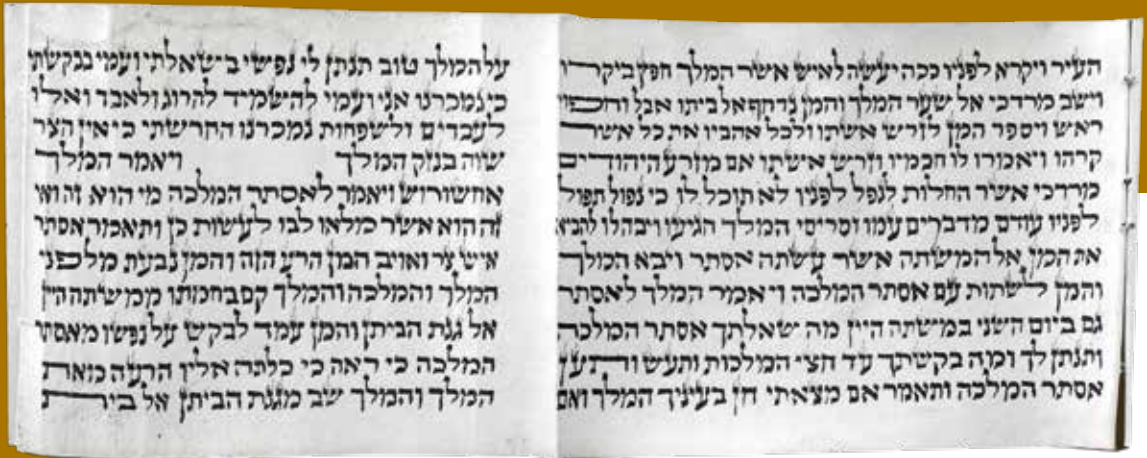 העיר ויקרא לפניו ככה יעשה לאיש אשר המלך חפץ ביקרו
וישב מרדכי אל שער המלך והמן נדחף אל ביתו אבל וחפוי
ראש ויספר המן לזרש אשתו ולכל אהביו את כל אשר
קרהו ויאמרו לו חכמיו וזרש אשתו אם מזרע היהודים
מרדכי אשר החלות לנפל לפניו לא תוכל לו כי נפול תפול
לפניו עודם מדברים עמו וסריסי המלך הגיעו ויבהלו להביא
את המן אל המשתה אשר עשתה אסתר ויבא המלך
והמן לשתות עם אסתר המלכה ויאמר המלך לאסתר
גם ביום השני במשתה היין מה שאלתך אסתר המלכה
ותנתן לך ומה בקשתך עד חצי המלכות ותעש ותען
אסתר המלכה ותאמר אם מצאתי חן בעיניך המלך ואם
על המלך טוב תנתן לי נפשי בשאלתי ועמי בבקשתי
כי נמכרנו אני ועמי להשמיד להרוג ולאבד ואלו
לעבדים ולשפחות נמכרנו החרשתי כי אין הצר
שוה בנזק המלך ויאמר המלך
אחשורוש ויאמר לאסתר המלכה מי הוא זה ואי
זה הוא אשר מלאו לבו לעשות כן ותאמר אסתר
איש צר ואויב המן הרע הזה והמן נבעת מלפני
המלך והמלכה והמלך קם בחמתו ממשתה היין
אל גנת הביתן והמן עמד לבקש על נפשו מאסתר
המלכה כי ראה כי כלתה אליו הרעה מאת
המלך והמלך שב מגנת הביתן אל בית